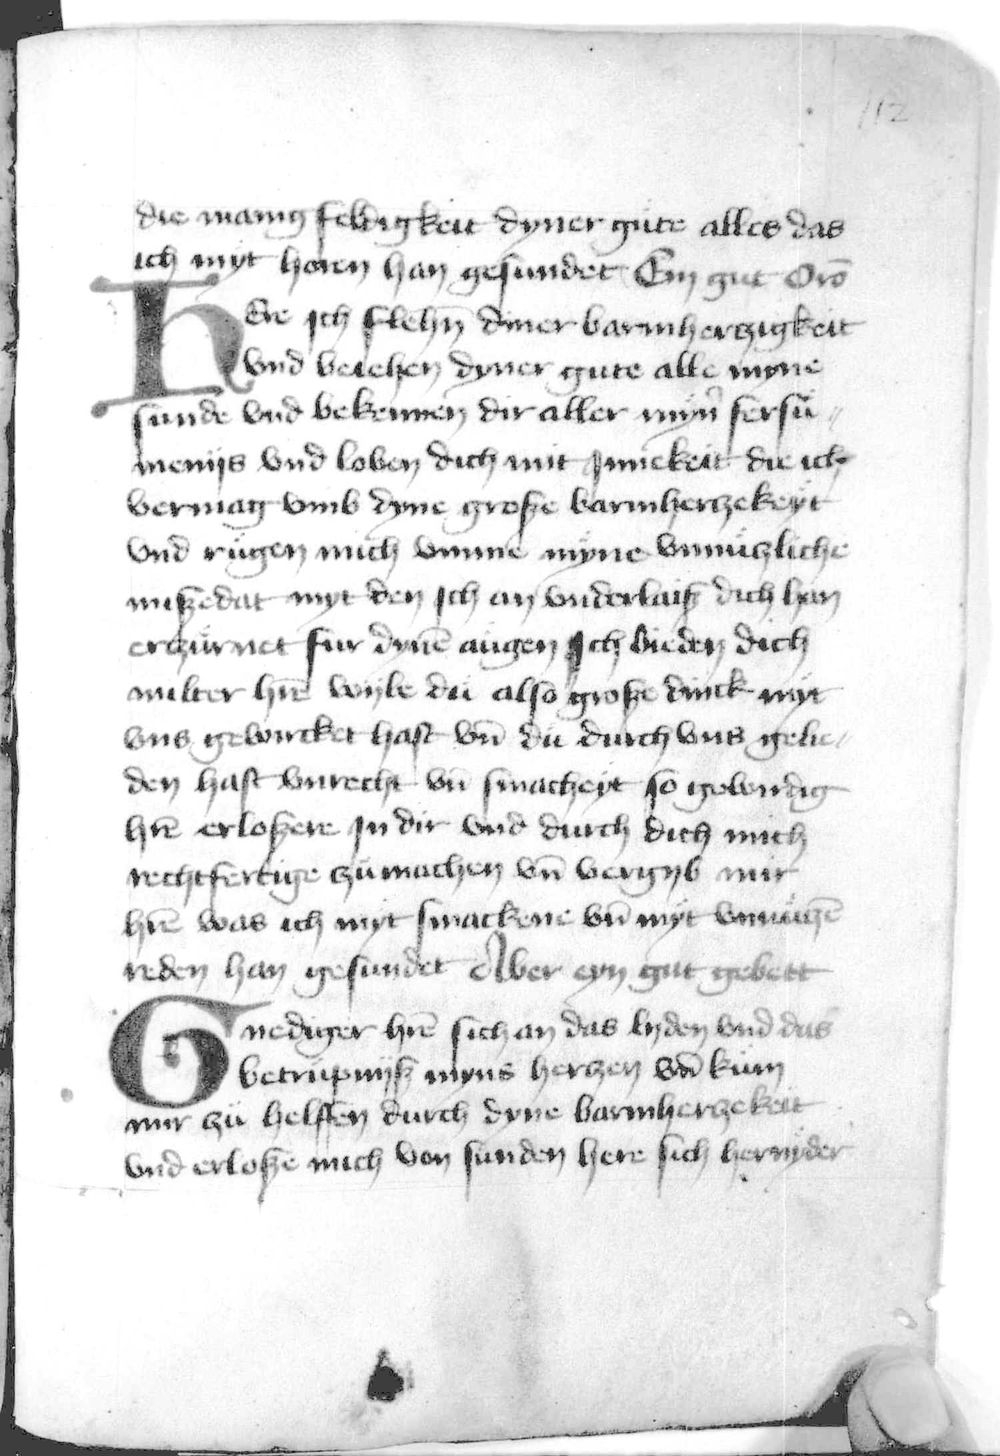 112
die manig feldigkeit dyner gute alles das
ich myt horen han gesundet Ein gut Orō
HEre ich flehn̄ diner barmherczigkeit
vnd veiehen dyner gute alle myne
sunde vnd bekennen dir aller myn̄ fersů-
menijs vnd loben dich mit Jnnekeit die ich
vermag vmb dyne große barmherczekeÿt
vnd růgen mich vmme mÿne vnnüczliche
mißedat myt den ich an vnderlaiß dich han
erzürnet fur dynē augen Jch bieden dich
milter hrē wyle dü also große dinck mÿt
vns gewircket hast vn̄ dü durch vns gelie-
den hast vnrecht vn̄ smacheÿt so gewirdig
hrē erloßere Jn dir vnd durch dich mich
rechtfertige zü machen vn̄ vergyb mir
hrē was ich mÿt smackene vn̄ mÿt vnnüczē
reden han gesundet Aber eyn gut gebett
Gnediger hrē sich an das lyden vnd das
betrüpnijß myns herczen vn̄ küm
mir zü helffen durch dyne barmherczekeit
vnd erloße mich von sunden here sich hernÿder